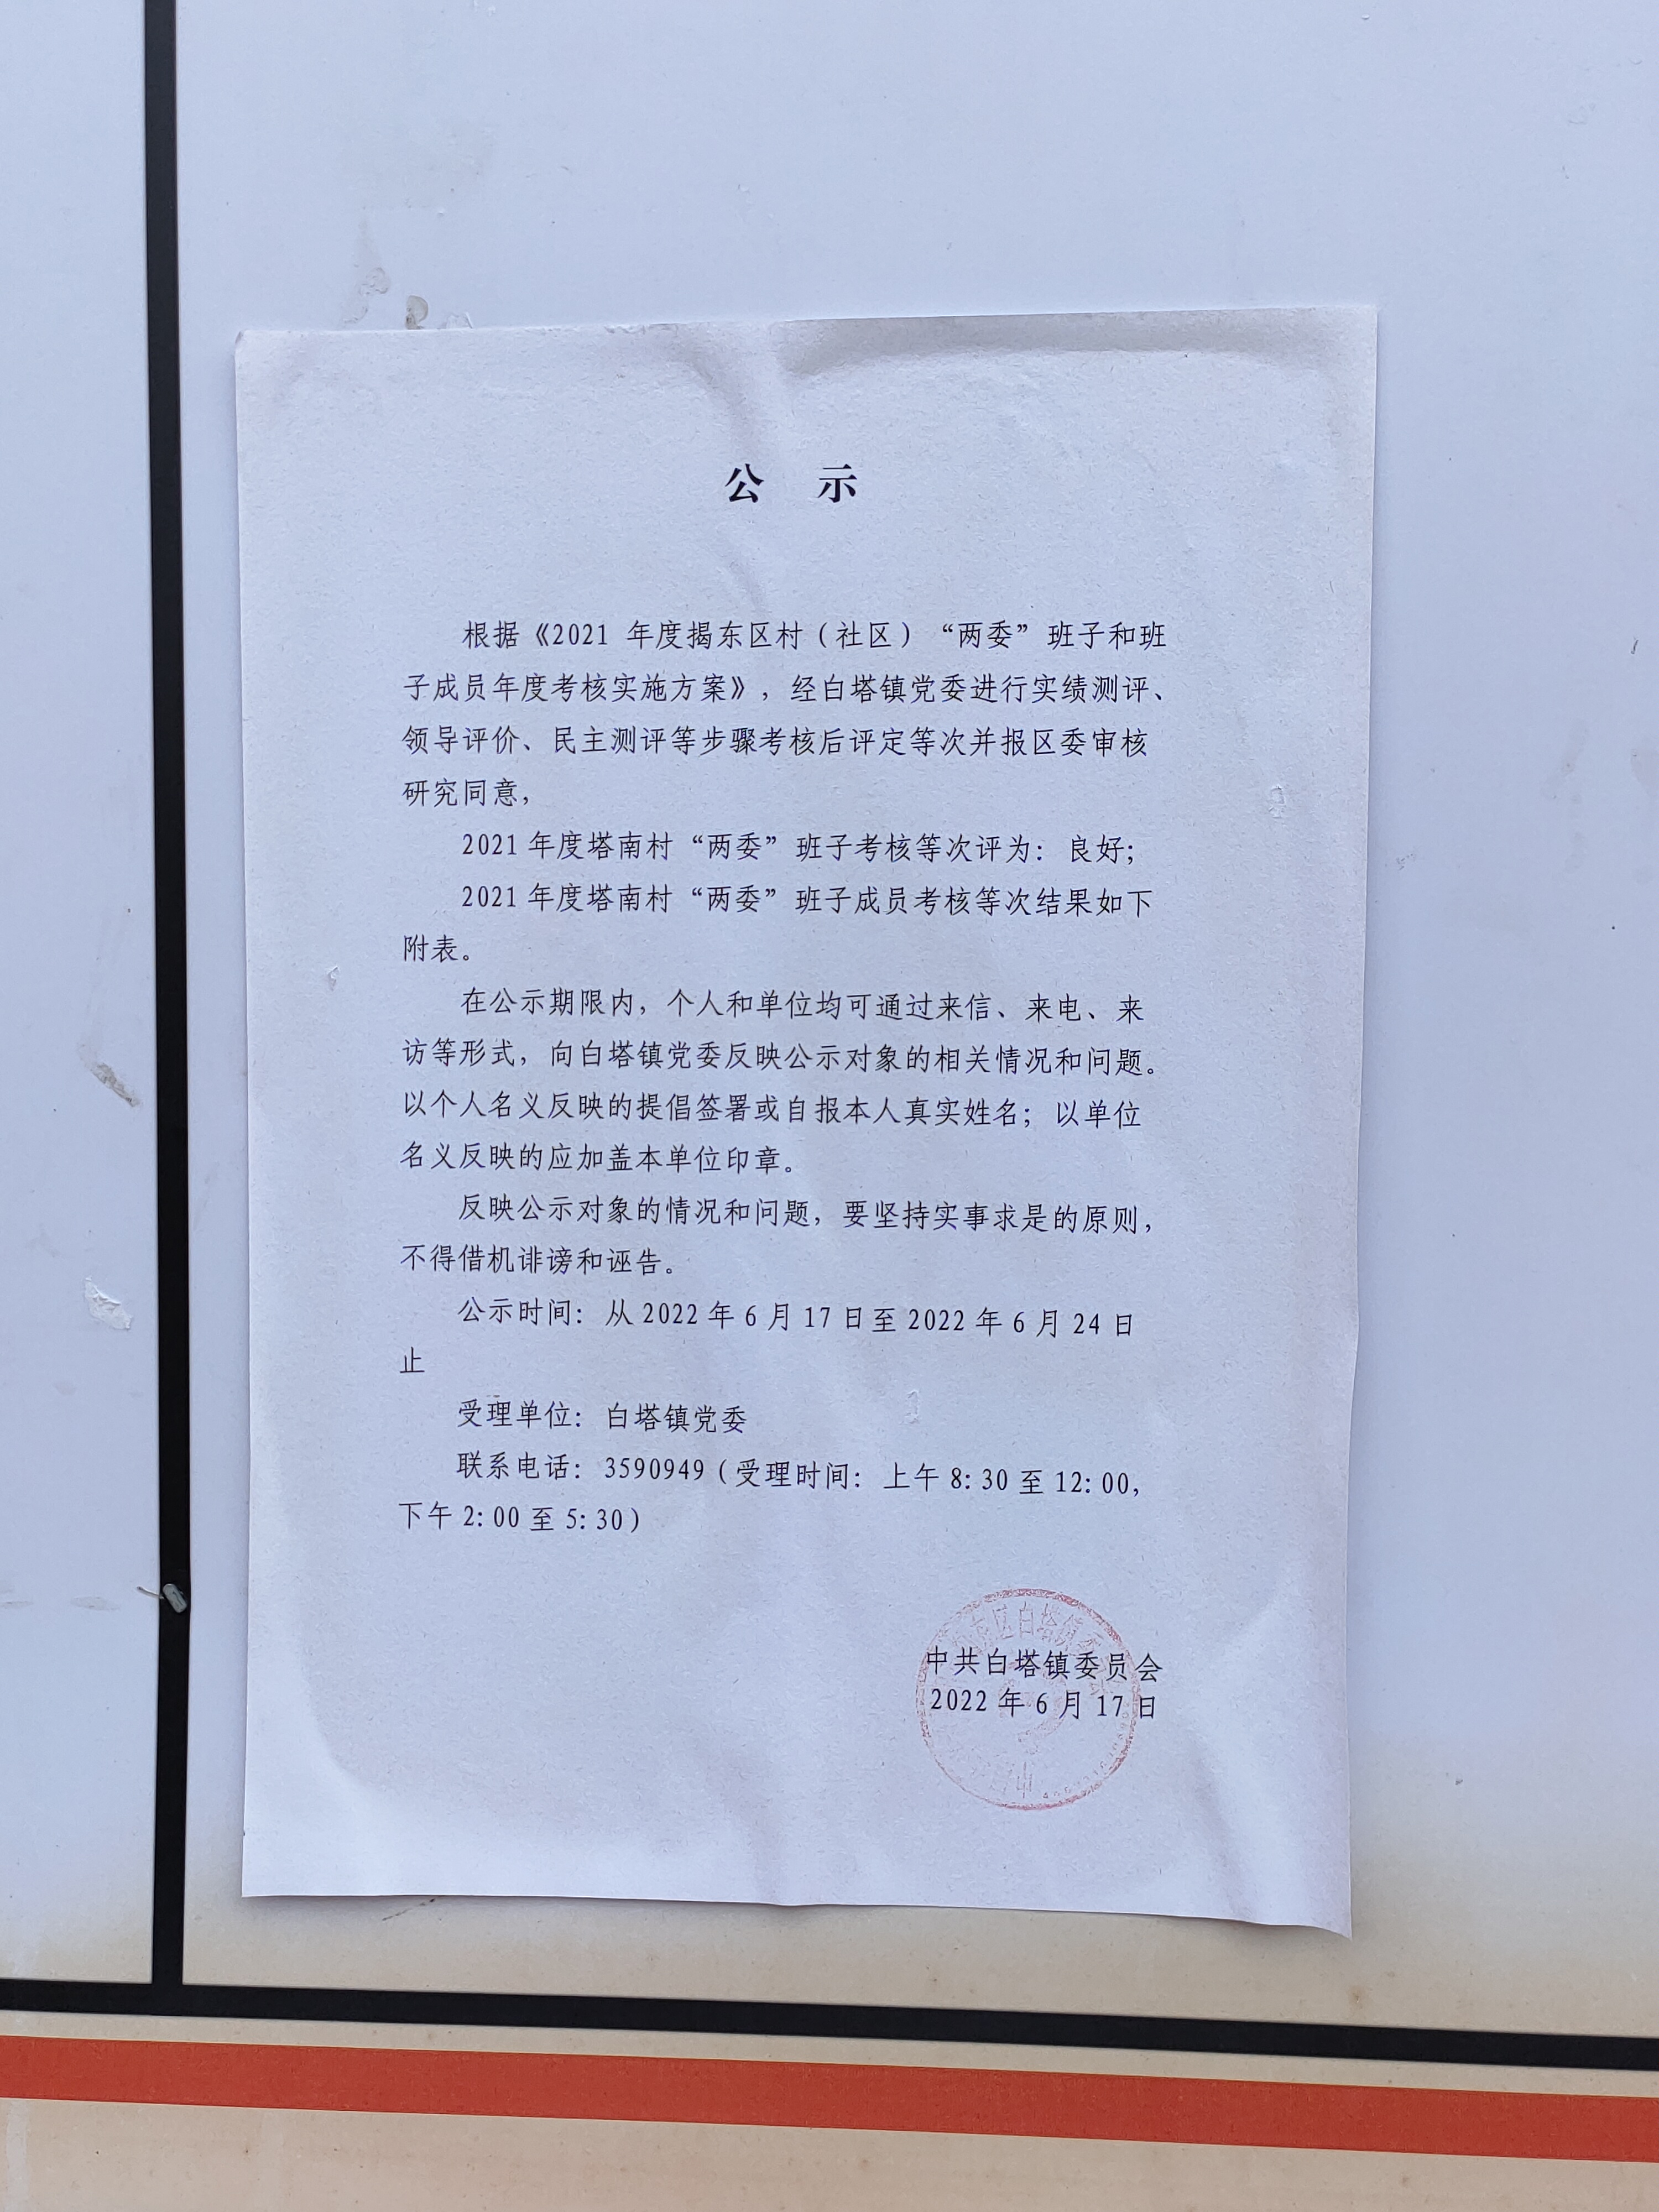 公 示
根据《2021 年度揭东区村（社区）“两委”班子和班
子成员年度考核实施方案》，经白塔镇党委进行实绩测评、
领导评价、民主测评等步骤考核后评定等次并报区委审核
研究同意，
2021年度塔南村“两委”班子考核等次评为：良好；
2021年度塔南村“两委”班子成员考核等次结果如下
附表。
在公示期限内，个人和单位均可通过来信、来电、来
访等形式，向白塔镇党委反映公示对象的相关情况和问题。
以个人名义反映的提倡签署或自报本人真实姓名；以单位
名义反映的应加盖本单位印章。
反映公示对象的情况和问题，要坚持实事求是的原则，
不得借机诽谤和诬告。
公示时间：从2022年6月17日至2022年6月24日
止
受理单位：白塔镇党委
联系电话：3590949（受理时间：上午8:30至12:00，
下午2:00至5:30）
中共白塔镇委员会
2022年6月17日